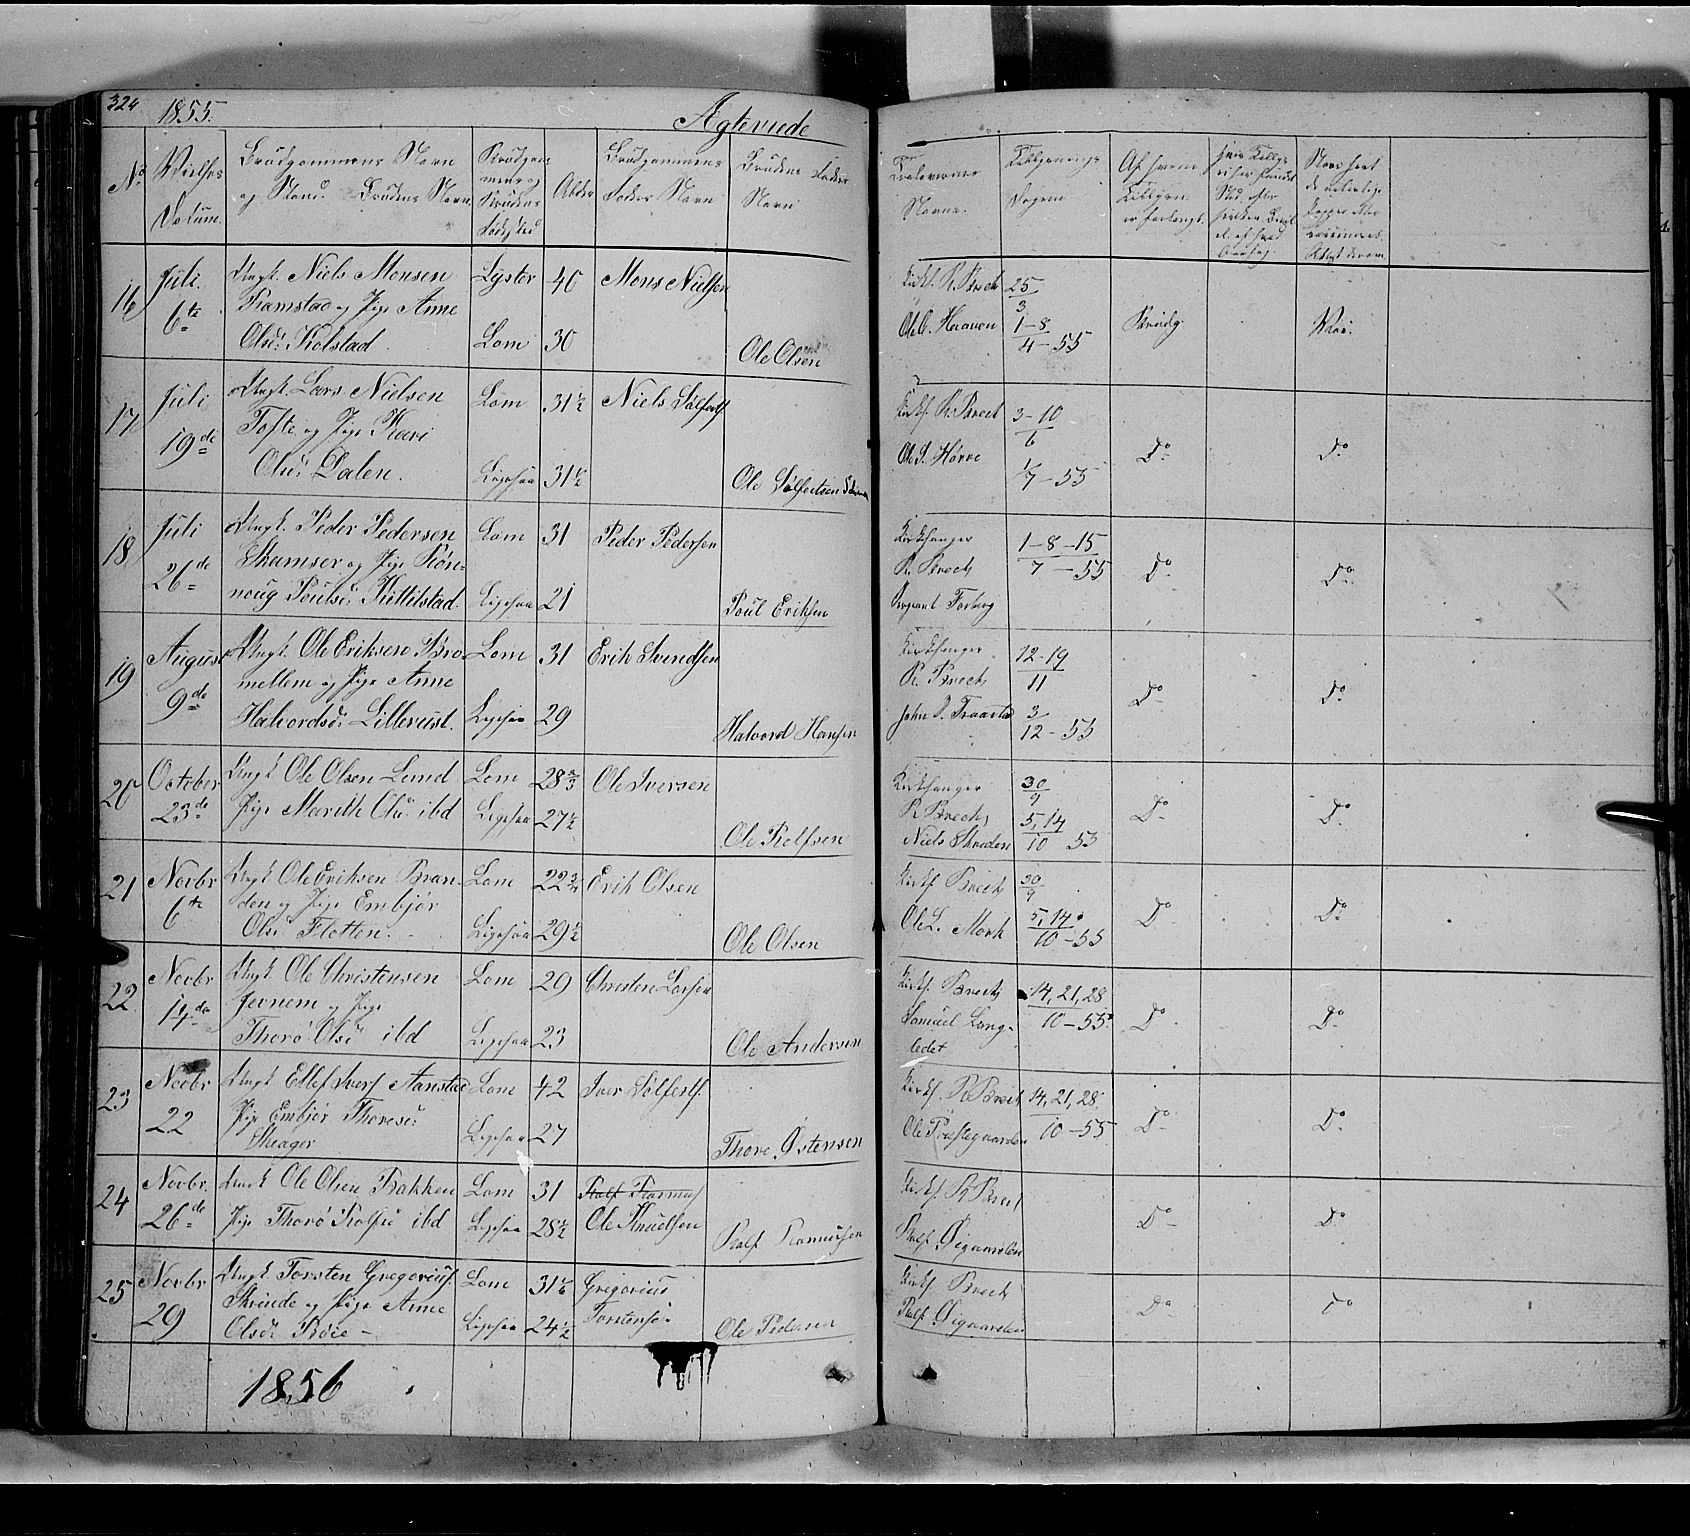 324 1855. Agteviede
No Vielses Datum. Brudgommens Navn og Stand. Brudens Navn Brudgommens og Brudens Fødested Alder Brudgommens Faders Navn Brudens Faders Navn Forlovernes Navne.
16 Juli 6te Ungk. Niels Monsen Lyster 40 Mons Nielsen Kirks. R. Brech 25/3
Ramstad og Pige Anne Ole O. Haaven 1-8/4-55 Brudg. Nei.
Olsd: Kolstad. Lom 30 Ole Olsen
17 Juli 19de Ungk. Lars Nielsen Lom 31½ Niels Sølfests. Kirks. R. Brech 3-10/6
Tofte og Pige Kari Ole S. Hørve 1/7-55 Do Do
Olsd: Dalen. Ligesaa 31½ Ole Sølfestsen
18 Juli 26de Ungk. Peder Pedersen Lom 31 Peder Pedersen Kirksanger 1-8-15/7-55
Skamser og Pige Røn- R. Brech Do Do
noug Poulsd: Kittilstad. Ligesaa 21 Poul Eriksen Sergeant Forberg
19 August 9de Ungk. Ole Eriksen Bro- Lom 31 Erik Svendsen Kirksanger 12-19/11
mellem og Pige Anne R. Brech Do Do
Halvordsd: Lillerust. Ligesaa 29 Halvord Hansen John P. Traastad 3/12-55
20 October 23de Ungk Ole Olsen Lund Lom 28⅔ Ole Iversen Kirksanger 30/9
Pige Marith Olsd: ibd Ligesaa 27½ Ole Rolfsen R Brech, 5,14/10 55 Do Do
Niels Skreden
21 Novbr 6te Ungk Ole Eriksen Bran- Lom 22¾ Erik Olsen Kirks Brech, 30/9
den og Pige Embjør Do Do
Olsd Flotten. Ligesaa 29½ Ole Olsen Ole L. Mork 5,14/10-55
22 Novbr 14de Ungk Ole Christensen Lom 29 Christen Larsen Kirks. Brech 14,21,28/10-55.
Jevnem og Pige Samuel Lang- Do Do
Thorø Olsd ibd Ligesaa 23 Ole Andersen ledet
23 Novbr 22 Ungk Ellef Ivers. Aanstad Lom 42 Iver Sølfests. Kirks. R Brech 14,21,28/10-55
Pige Embjør Thoresd: Ole Præstegaarden Do Do
Skiager Ligesaa 27 Thore Østensen
24 Novbr. 26de Ungk Ole Olsen Bakken Lom 31 Rolf Rasmus. Kirks. R Brech
Pige Thorø Rolfsd ibd Ligesaa 28½ Ole Knudsen Rolf Rasmusen Rolf Øigaarden Do Do
25 Novbr 29 Ungk Torsten Gregorius. Lom 31½ Gregorius Kirks. Brech
Skrinde og Pige Anne Torstensøn Rolf Øigaarden Do Do
Olsdr Bøie- Ligesaa 24½ Ole Pedersen
1856